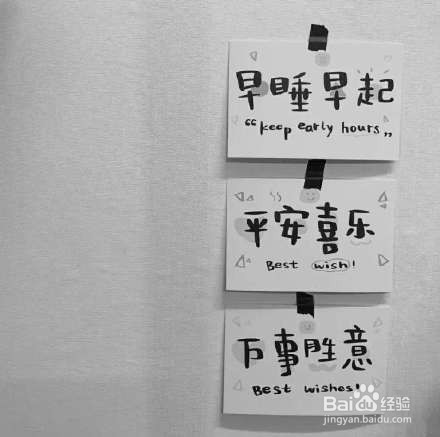 早睡早起
“keep early hours„
平安喜乐
Best wish!
万事胜意
Best wishes!
Baidu经验
jingyan.baidu.com